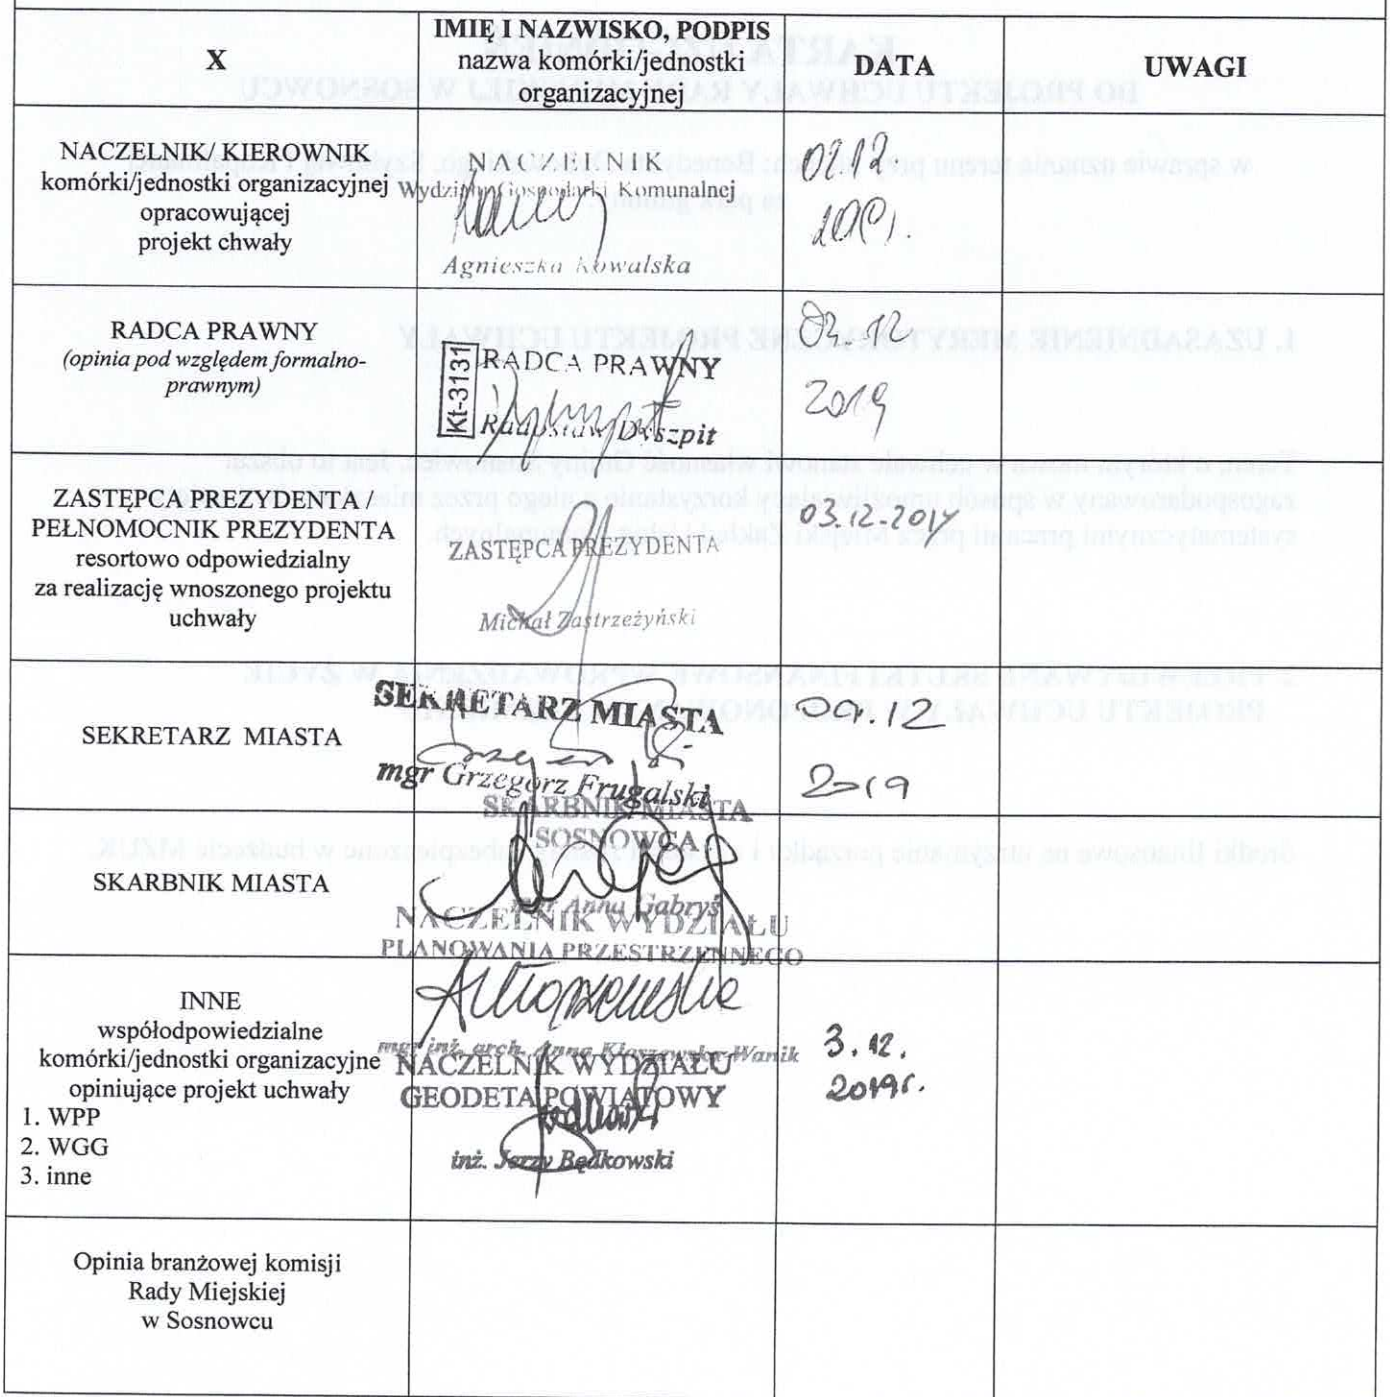 X
IMIĘ I NAZWISKO, PODPIS
nazwa komórki/jednostki
organizacyjnej
DATA
UWAGI
NACZELNIK/ KIEROWNIK
komórki/jednostki organizacyjnej
opracowującej
projekt chwały
NACZELNIK
Wydziału Gospodarki Komunalnej
Agnieszka Kowalska
02.12.
2019r.
RADCA PRAWNY
(opinia pod względem formalno-
prawnym)
Kt-3131
RADCA PRAWNY
Radosław Dyszpit
02.12.
2019
ZASTĘPCA PREZYDENTA /
PEŁNOMOCNIK PREZYDENTA
resortowo odpowiedzialny
za realizację wnoszonego projektu
uchwały
ZASTĘPCA PREZYDENTA
Michał Zastrzeżyński
03.12.2019
SEKRETARZ MIASTA
SEKRETARZ MIASTA
mgr Grzegorz Frugalski
12
2019
SKARBNIK MIASTA
SKARBNIK MIASTA
SOSNOWCA
mgr Anna Gabryś
INNE
współodpowiedzialne
komórki/jednostki organizacyjne
opiniujące projekt uchwały
1. WPP
2. WGG
3. inne
NACZELNIK WYDZIAŁU
PLANOWANIA PRZESTRZENNEGO
mgr inż. arch. Anna Kłoszewska-Wanik
NACZELNIK WYDZIAŁU
GEODETA POWIATOWY
inż. Jerzy Będkowski
3.12.
2019r.
Opinia branżowej komisji
Rady Miejskiej
w Sosnowcu